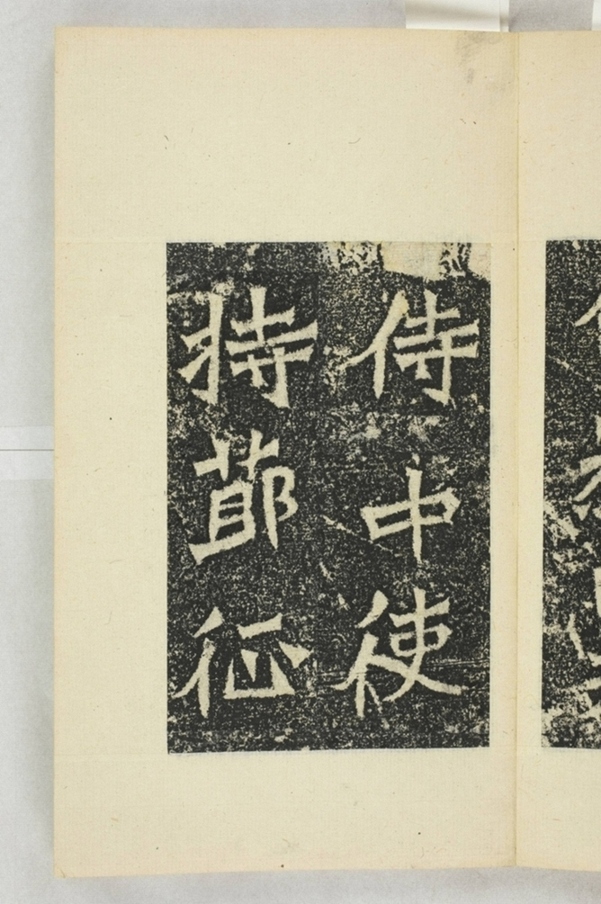 侍中使
持節征